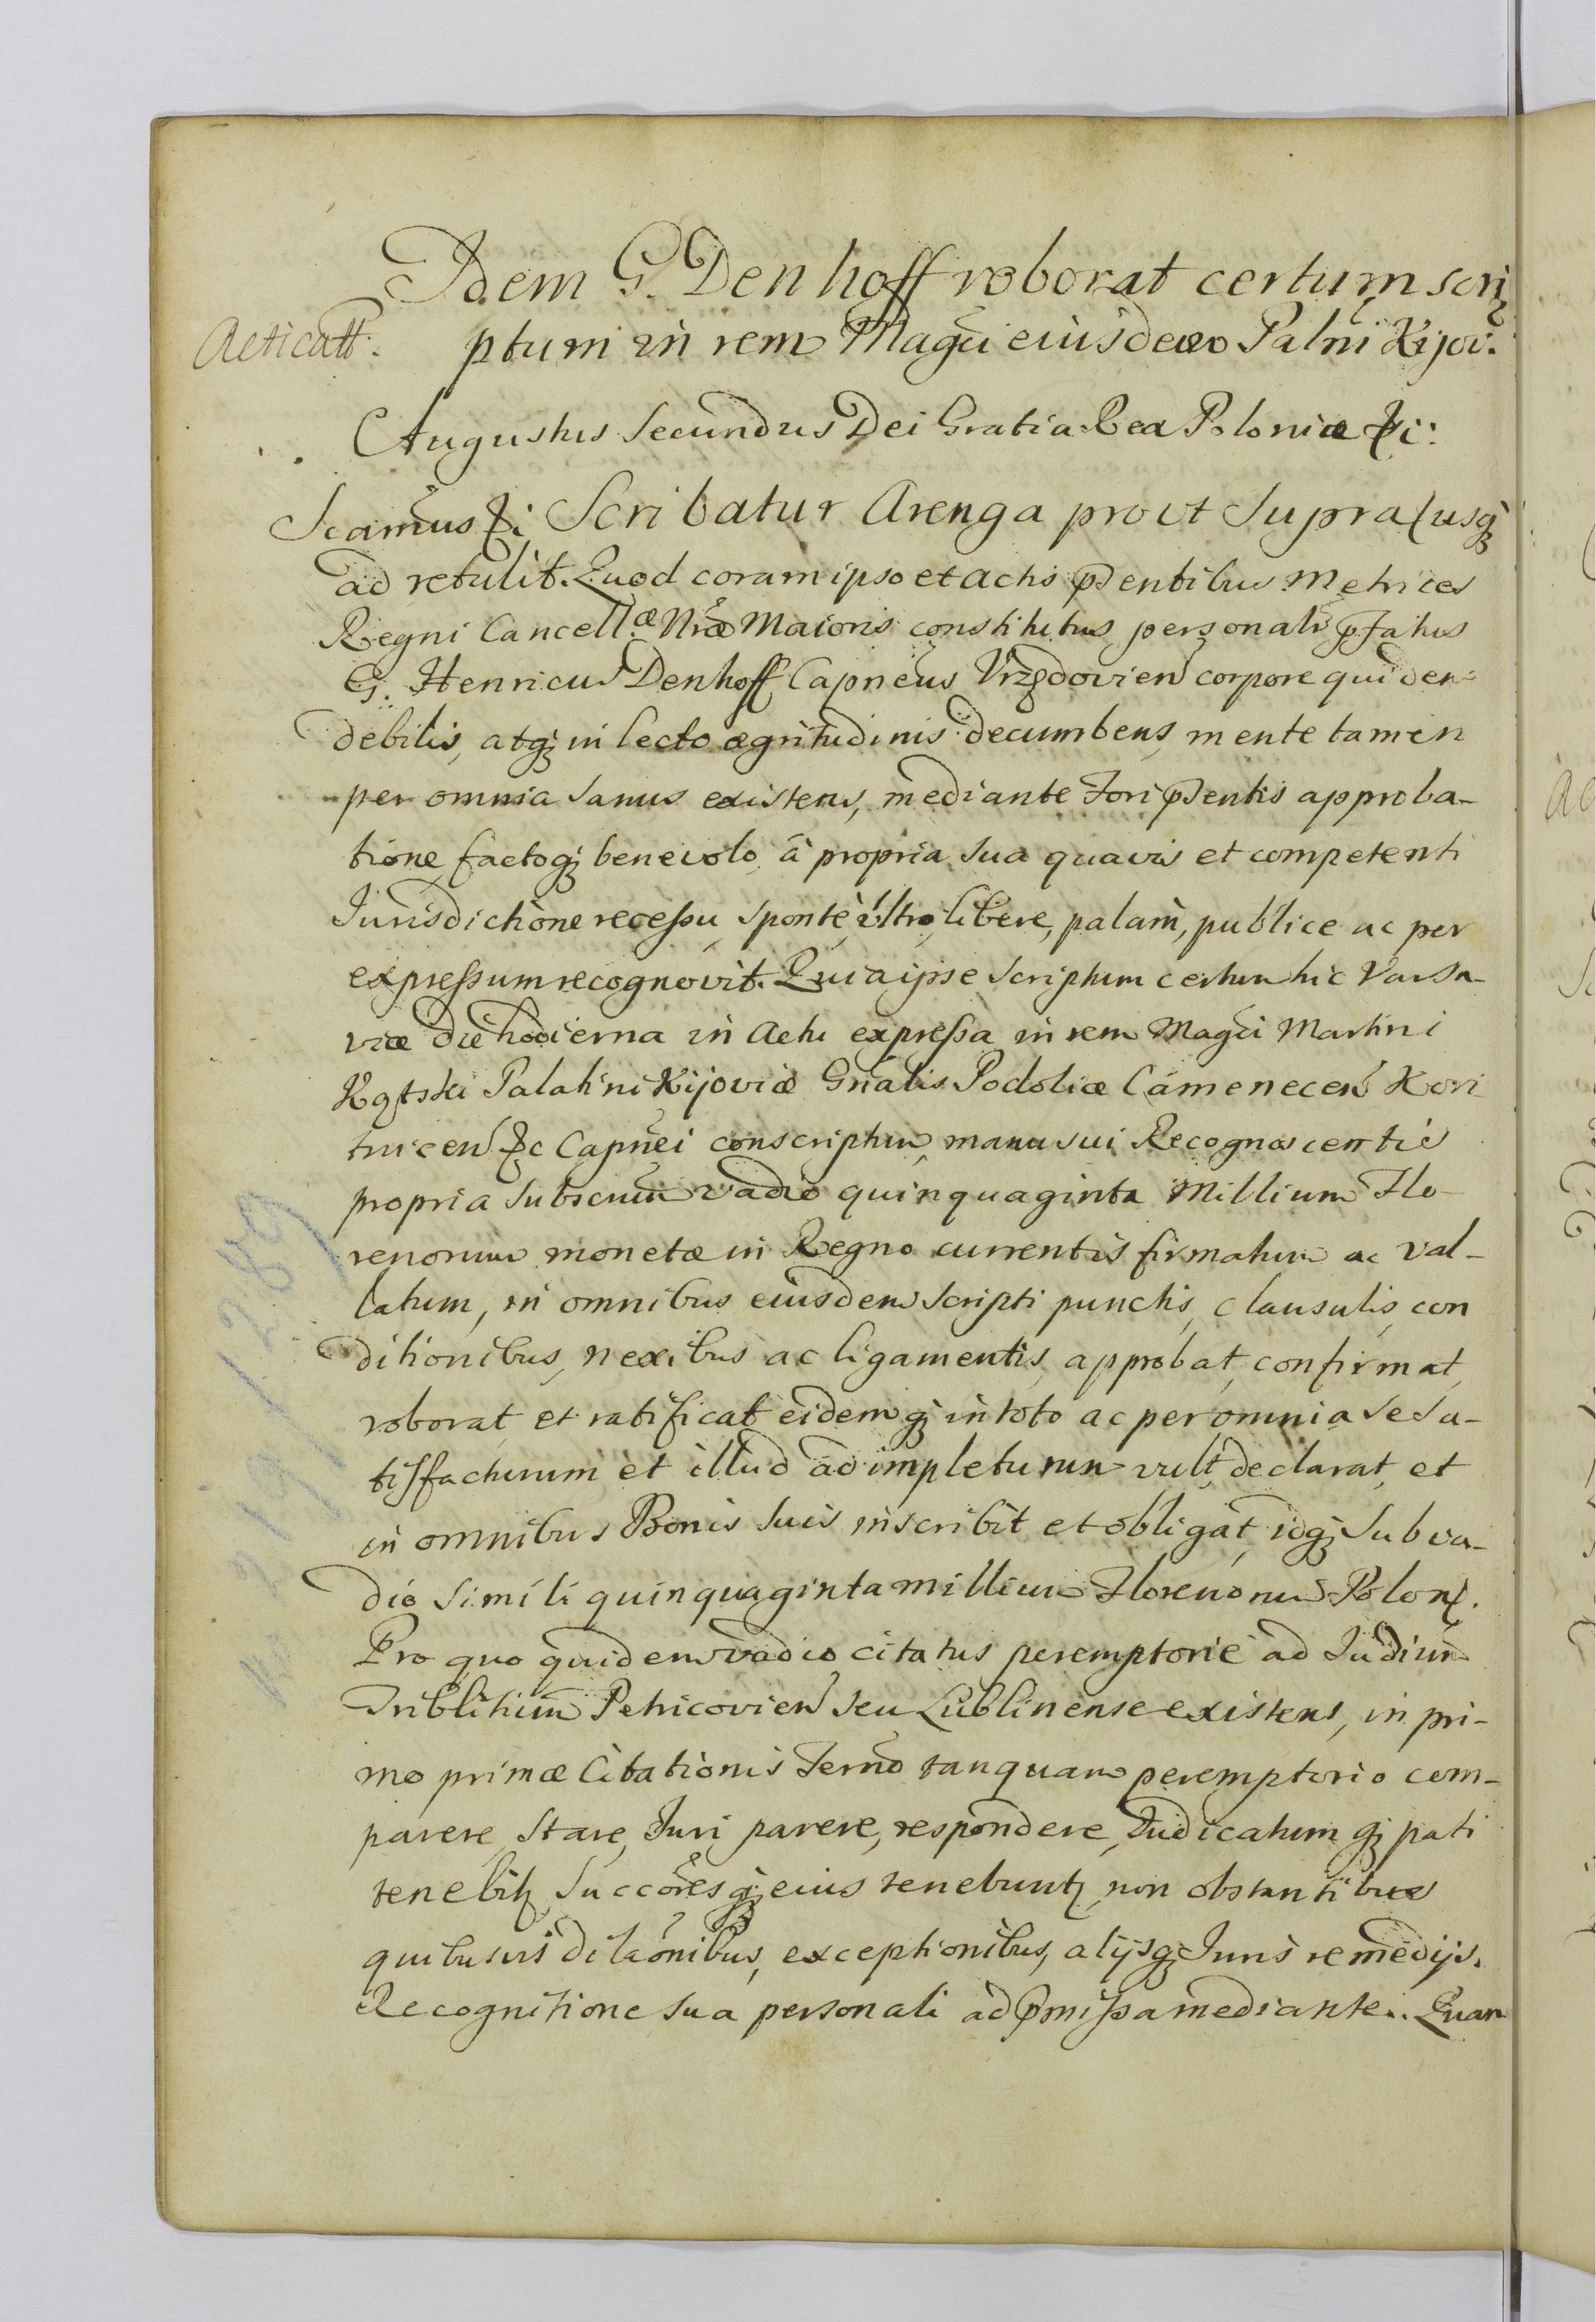 Idem G. Denhoff roborat certum scri
Acticatt. ptum in rem Magci eiusdem Palni Kijov.
Augustus Secundus Dei Gratia Rex Poloniæ &c:
Scamus &c Scribatur Arenga prout Supra usq
ad retulit. Quod coram ipso et actis pntibus Metrices
Regni Cancellæ Nræ Maioris constitutus personalr pfatus
G. Henricus Denhoff Capneus Vrzędovien corpore quidem
debilis, atq in lecto ægritudinis decumbens, mente tamen
per omnia sanus existens, mediante Fori pntis approba-
tione, factoq benevolo, â propria sua quavis et competenti
Iurisdictione recessu, sponte, ultro, libere, palam, publice ac per
expressum recognovit. Quia ipse scriptum certum hic Varsa-
viæ die hodierna in Actu expressa in rem Magci Martini
Kątski Palatini Kijoviæ Gnalis Podoliæ Camenecen
&c Capnei conscriptum, manu sui Recognoscentis
propria subscrum vadio quinquaginta Millium Flo-
renorum monetæ in Regno currentis firmatum ac val-
latum, in omnibus eiusdem scripti punctis, clausulis, con
ditionibus, nexibus ac ligamentis, approbat, confirmat,
roborat, et ratificat eidemq in toto ac per omnia se sa-
tisfacturum et illud adimpleturum vult, declarat, et
in omnibus Bonis suis inscribit et obligat, idq sub va-
dio simili quinquaginta millium Florenorum Polon.
Pro quo quidem vadio citatus peremptorie ad Iudium
Triblitium Petricovien seu Lublinense existens, in pri-
mo primæ Citationis Termo tanquam peremptorio com-
parere, stare, Iuri parere, respondere, Iudicatumq pati
tenebit, Succoresq eius tenebunt, non obstantibus
quibusvis dilaonibus, exceptionibus, alijsq Iuris remedijs.
Recognitione sua personali ad pmissa mediante. Quam